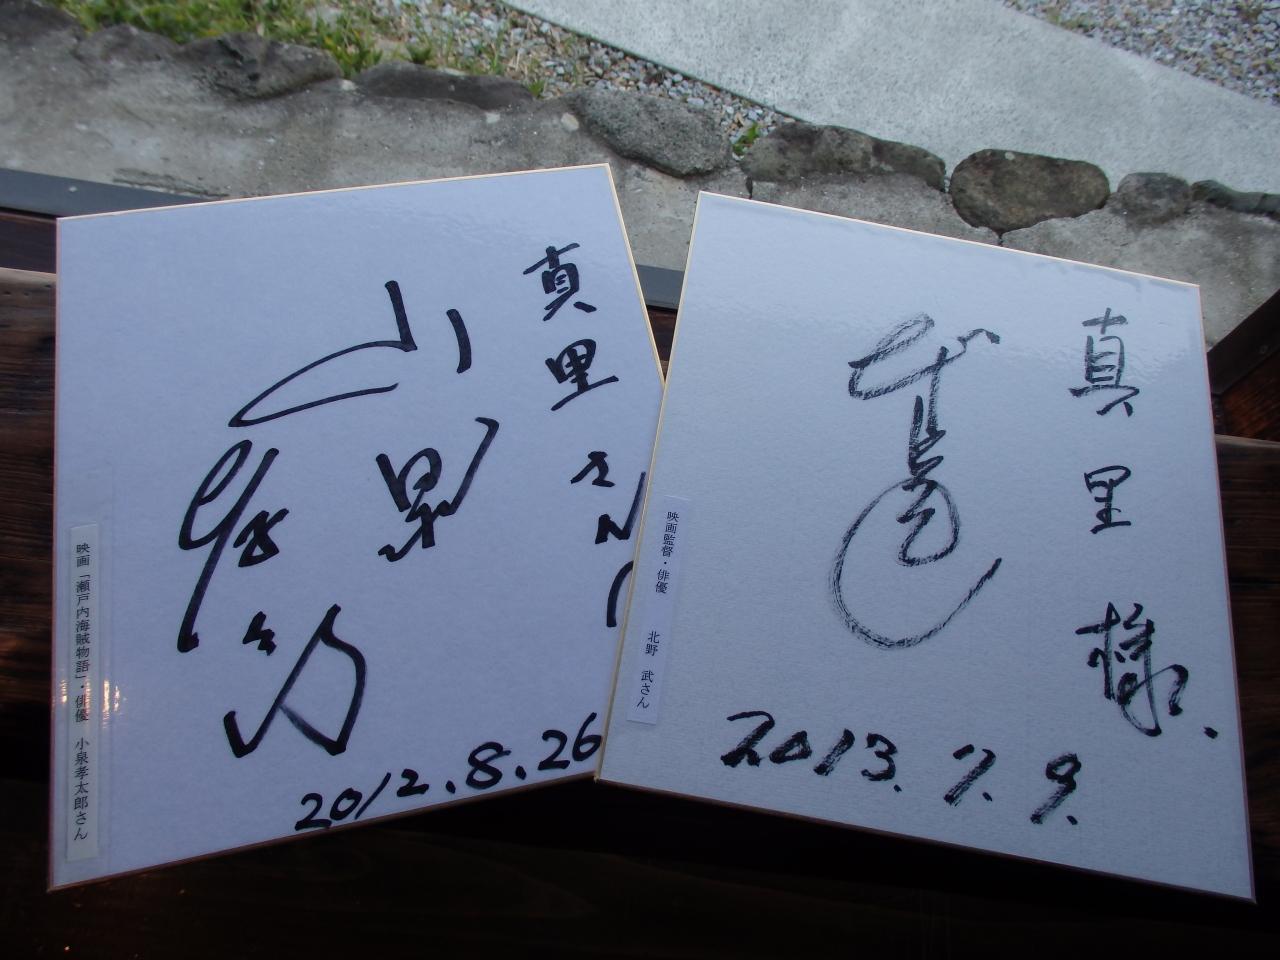 真里さんへ
小泉孝太郎
2012.8.26
映画「瀬戸内海賊物語」・俳優 小泉孝太郎さん
真里様.
2013.7.9.
映画監督・俳優 北野 武さん